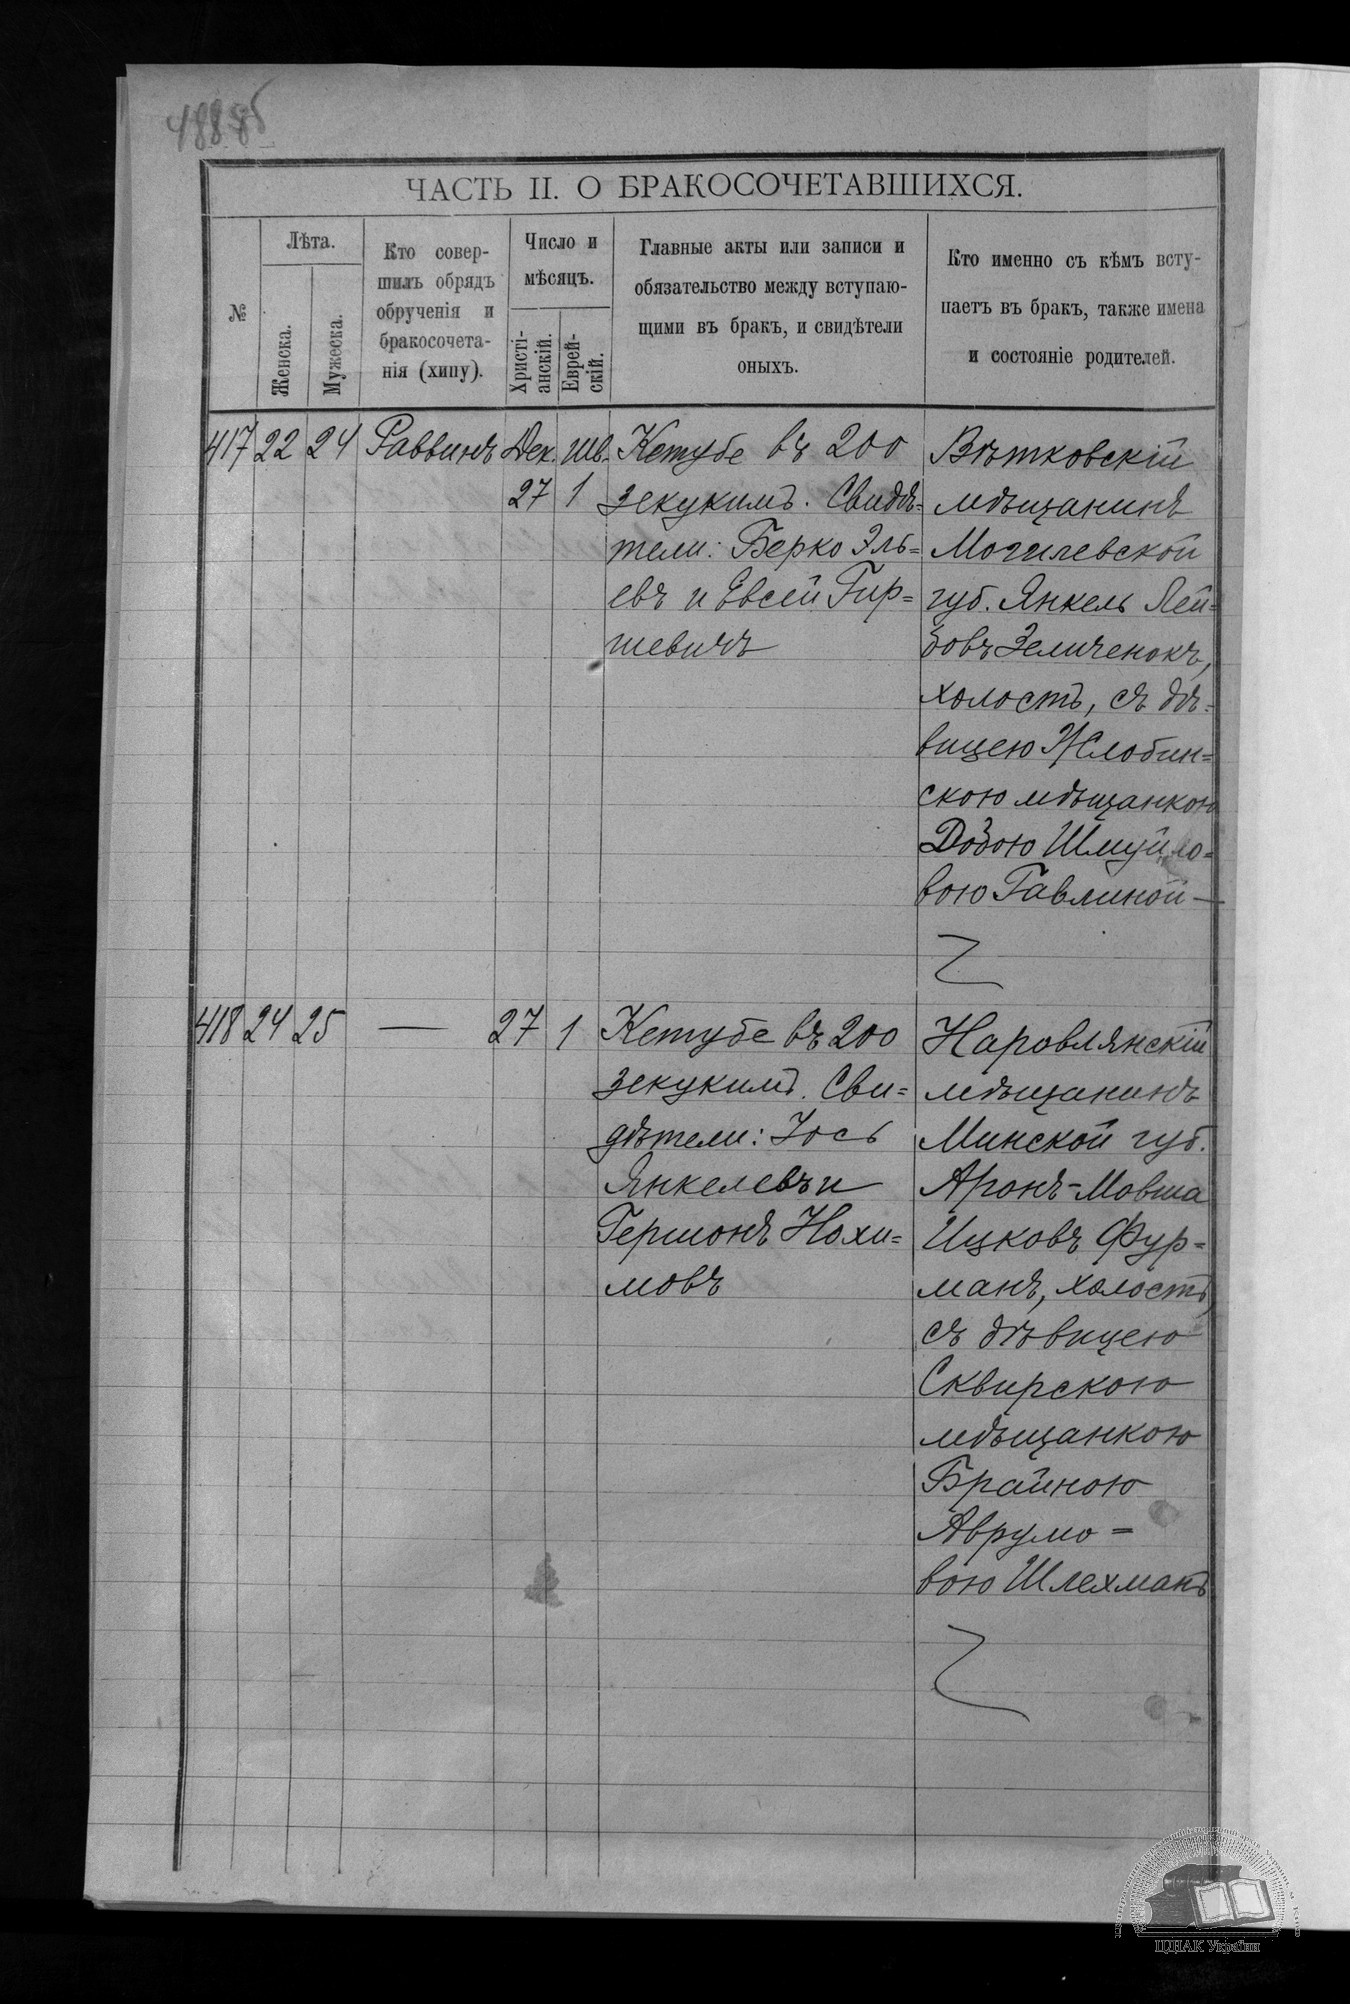 ЧАСТЬ II. О БРАКОСОЧЕТАВШИХСЯ.
№
Лѣта.
Женска.
Мужеска.
Кто совер-
шилъ обрядъ
обрученія и
бракосочета-
нія (хипу).
Число и
мѣсяцъ.
Христі-
анскій.
Еврей-
скій.
Главные акты или записи и
обязательство между вступаю-
щими въ бракъ, и свидѣтели
оныхъ.
Кто именно съ кѣмъ всту-
паетъ въ бракъ, также имена
и состояніе родителей.
417 22 24 Раввинъ Дек. Шв.
27 1
Кетубе въ 200
зекукимъ. Свидѣ=
тели: Берко Эль=
евъ и Евсей Гир=
шевичъ
Вѣтковскій
мѣщанинъ
Могилевской
губ. Янкель Лей=
бовъ Зеличенокъ,
холостъ, съ дѣ=
вицею Жлобин=
скою мѣщанкою
Добою Шмуйло=
вою Гавлиной —
418 24 25 — 27 1
Кетубе въ 200
зекукимъ. Сви=
дѣтели: Іось
Янкелевъ и
Гершонъ Нохи=
мовъ
Наровлянскій
мѣщанинъ
Минской губ.
Аронъ-Мовша
Ицковъ Фур=
манъ, холостъ,
съ дѣвицею
Сквирскою
мѣщанкою
Брайною
Аврумо=
вою Шлехманъ
ЦДІАК України